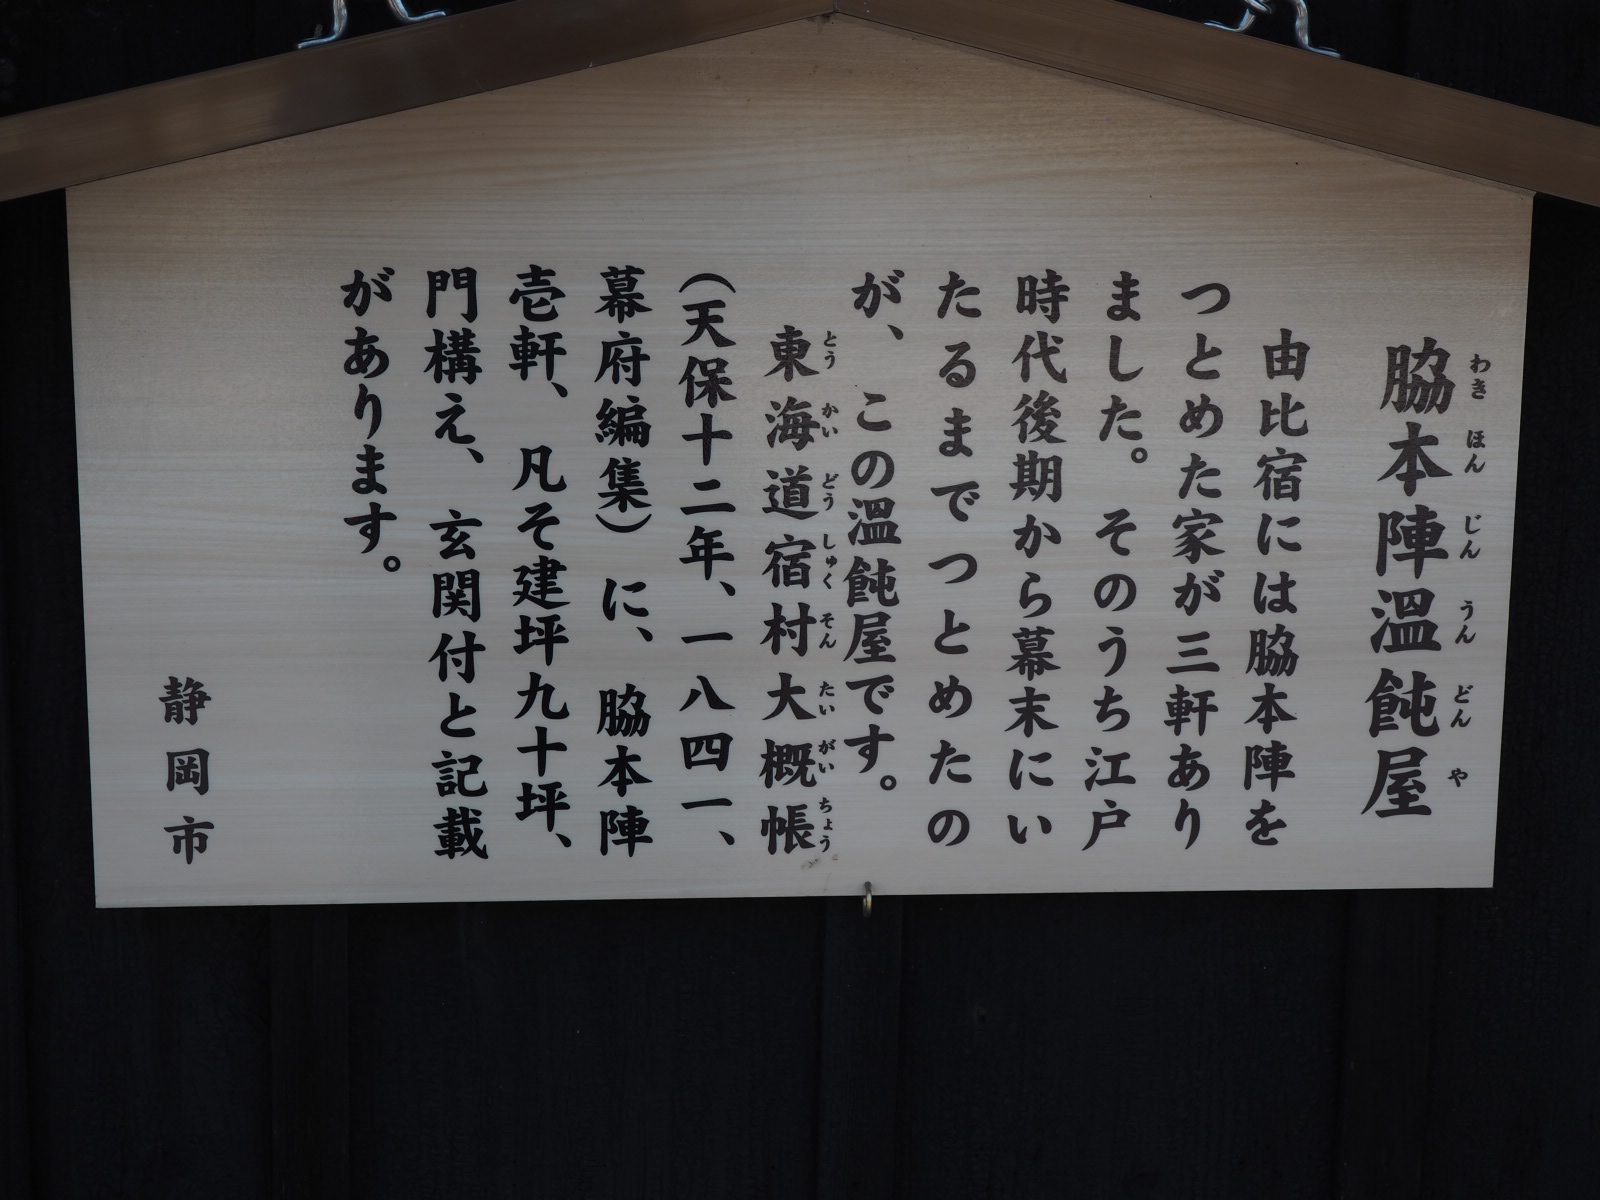 脇本陣温飩屋
わきほんじんうんどんや
由比宿には脇本陣を
つとめた家が三軒あり
ました。そのうち江戸
時代後期から幕末にい
たるまでつとめたの
が、この温飩屋です。
東海道宿村大概帳
とうかいどうしゅくそんたいがいちょう
(天保十二年、一八四一、
幕府編集)に、脇本陣
壱軒、凡そ建坪九十坪、
門構え、玄関付と記載
があります。
静岡市